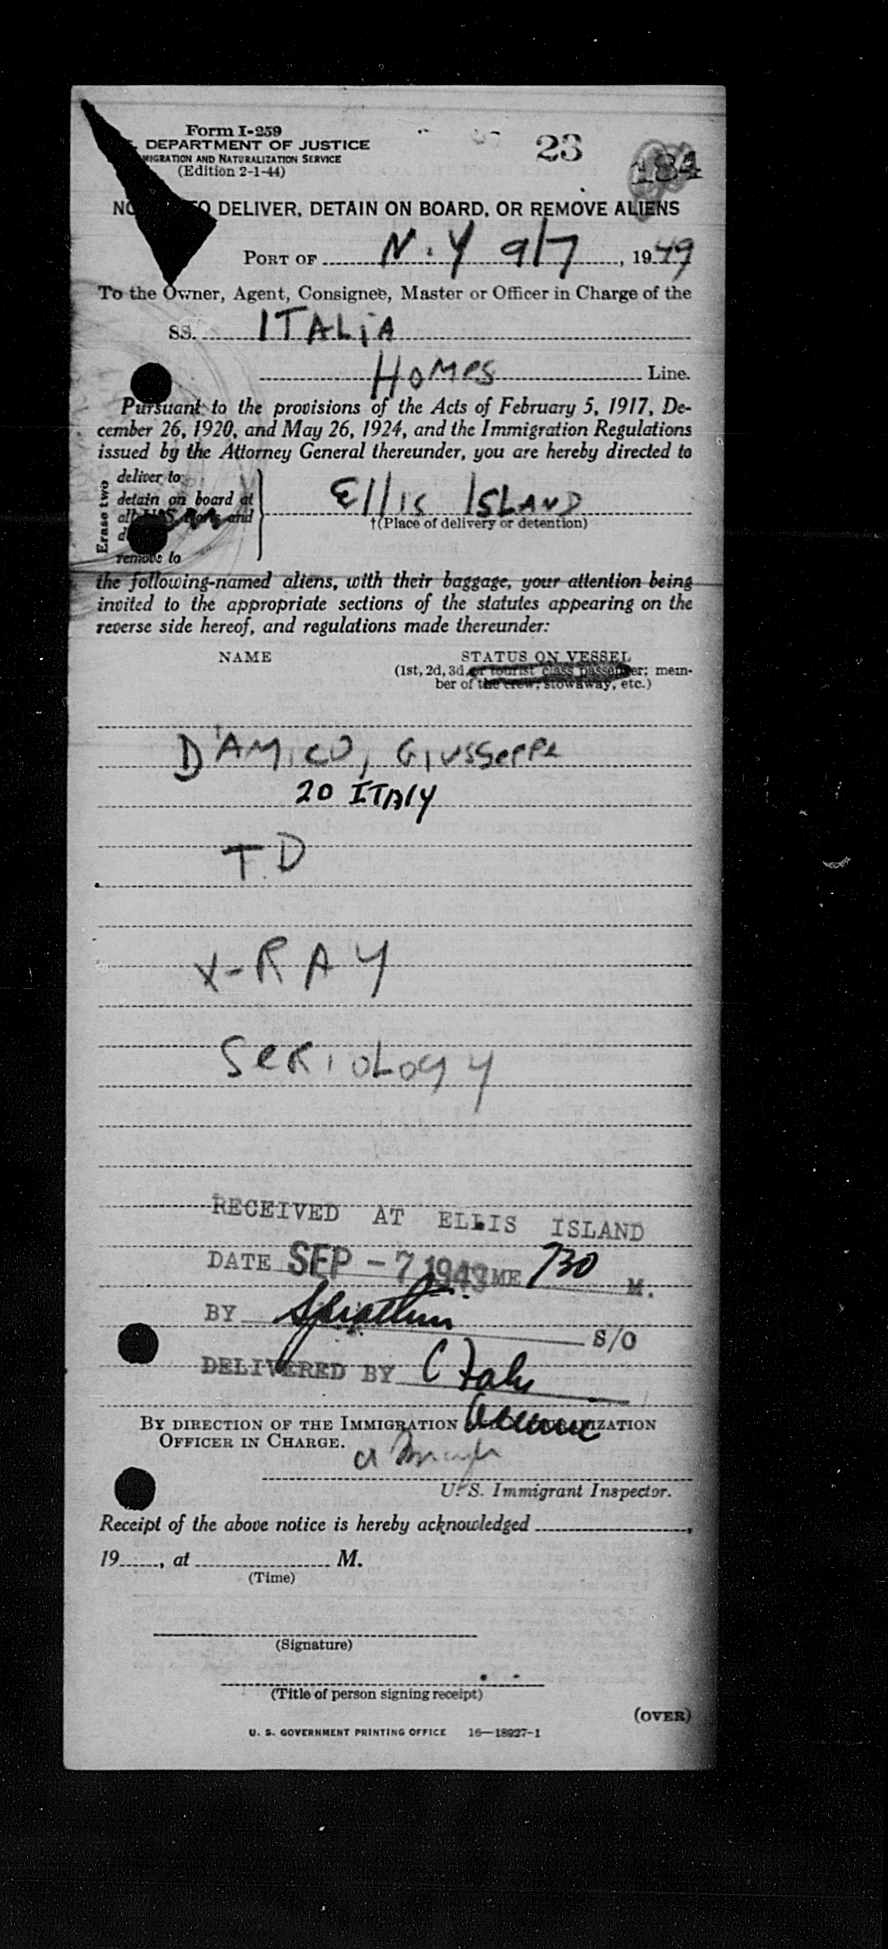 Form I-259
DEPARTMENT OF JUSTICE
IMMIGRATION AND NATURALIZATION SERVICE
(Edition 2-1-44)
23
184
DELIVER, DETAIN ON BOARD, OR REMOVE ALIENS
PORT OF N.Y 9/7, 1949
To the Owner, Agent, Consignee, Master or Officer in Charge of the
SS. ITALIA
Homes Line.
Pursuant to the provisions of the Acts of February 5, 1917, De-
cember 26, 1920, and May 26, 1924, and the Immigration Regulations
issued by the Attorney General thereunder, you are hereby directed to
Erase two
deliver to
detain on board at
all and
remove to
Ellis Island
†(Place of delivery or detention)
the following-named aliens, with their baggage, your attention being
invited to the appropriate sections of the statutes appearing on the
reverse side hereof, and regulations made thereunder:
NAME STATUS ON VESSEL
(1st, 2d, 3d, or tourist class passenger; mem-
ber of the crew, stowaway, etc.)
D'AMICO, Giusseppe
20 ITALY
T.D
X-RAY
SeRiology
RECEIVED AT ELLIS ISLAND
DATE SEP - 7 1949 TIME 730 M.
BY S/O
DELIVERED BY
BY DIRECTION OF THE IMMIGRATION AND NATURALIZATION
OFFICER IN CHARGE.
U. S. Immigrant Inspector.
Receipt of the above notice is hereby acknowledged,
19, at M.
(Time)
(Signature)
(Title of person signing receipt)
(OVER)
U. S. GOVERNMENT PRINTING OFFICE 16—18927-1